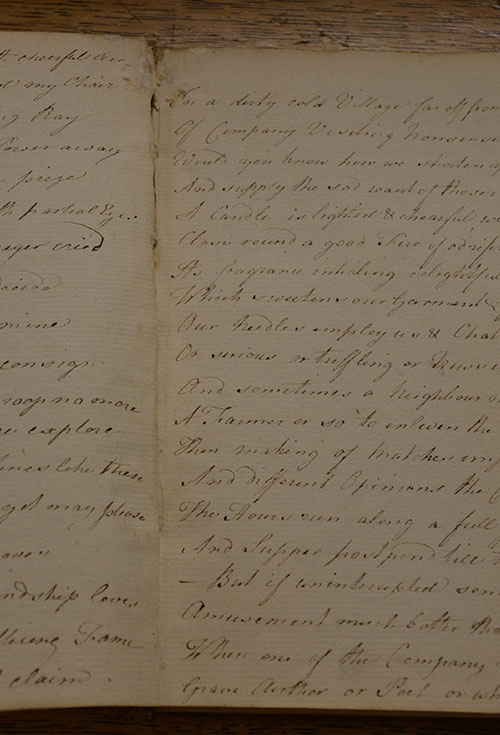 cheerful
my Chair
Ray
Power away
prize
partial Eye
cried
decide
mine
consign
no more
explore
lines like these
yet may please
friendship loves
Fame
claim.
In a dirty cold Village far off from
Of Company Visiting Nonsense
Would you know how we shorten
And supply the sad want of these
A Candle is lighted & chearful we
Close round a good Fire of
As fragrance inhaling delightful
Which sweetens our Garments
Our Needles employ us & Chat
Or serious or triffling or
And sometimes a Neighbour
A Farmer or so to enliven the
Then making of Matches
And different Opinions the
The Hours run along a full
And Supper postpon'd till
— But if uninterrupted some
Amusement much better than
When one of the Company
Grave Author or Poet or